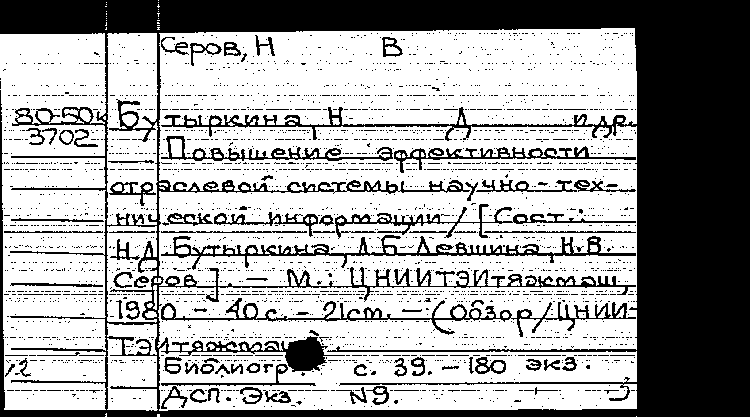 Серов, Н В
80-50к Бутыркина, Н Д и др.
3702
Повышение эффективности
отраслевой системы научно-тех-
нической информации / [Сост.:
Н.Д. Бутыркина, Л.Б. Левшина, Н.В.
Серов]. — М.: ЦНИИТЭИтяжмаш,
1980. - 40 с. - 21 см. — (Обзор / ЦНИИ-
ТЭИтяжмаш).
12 Библиогр. с. 39. - 180 экз.
ДСП. Экз. №9.